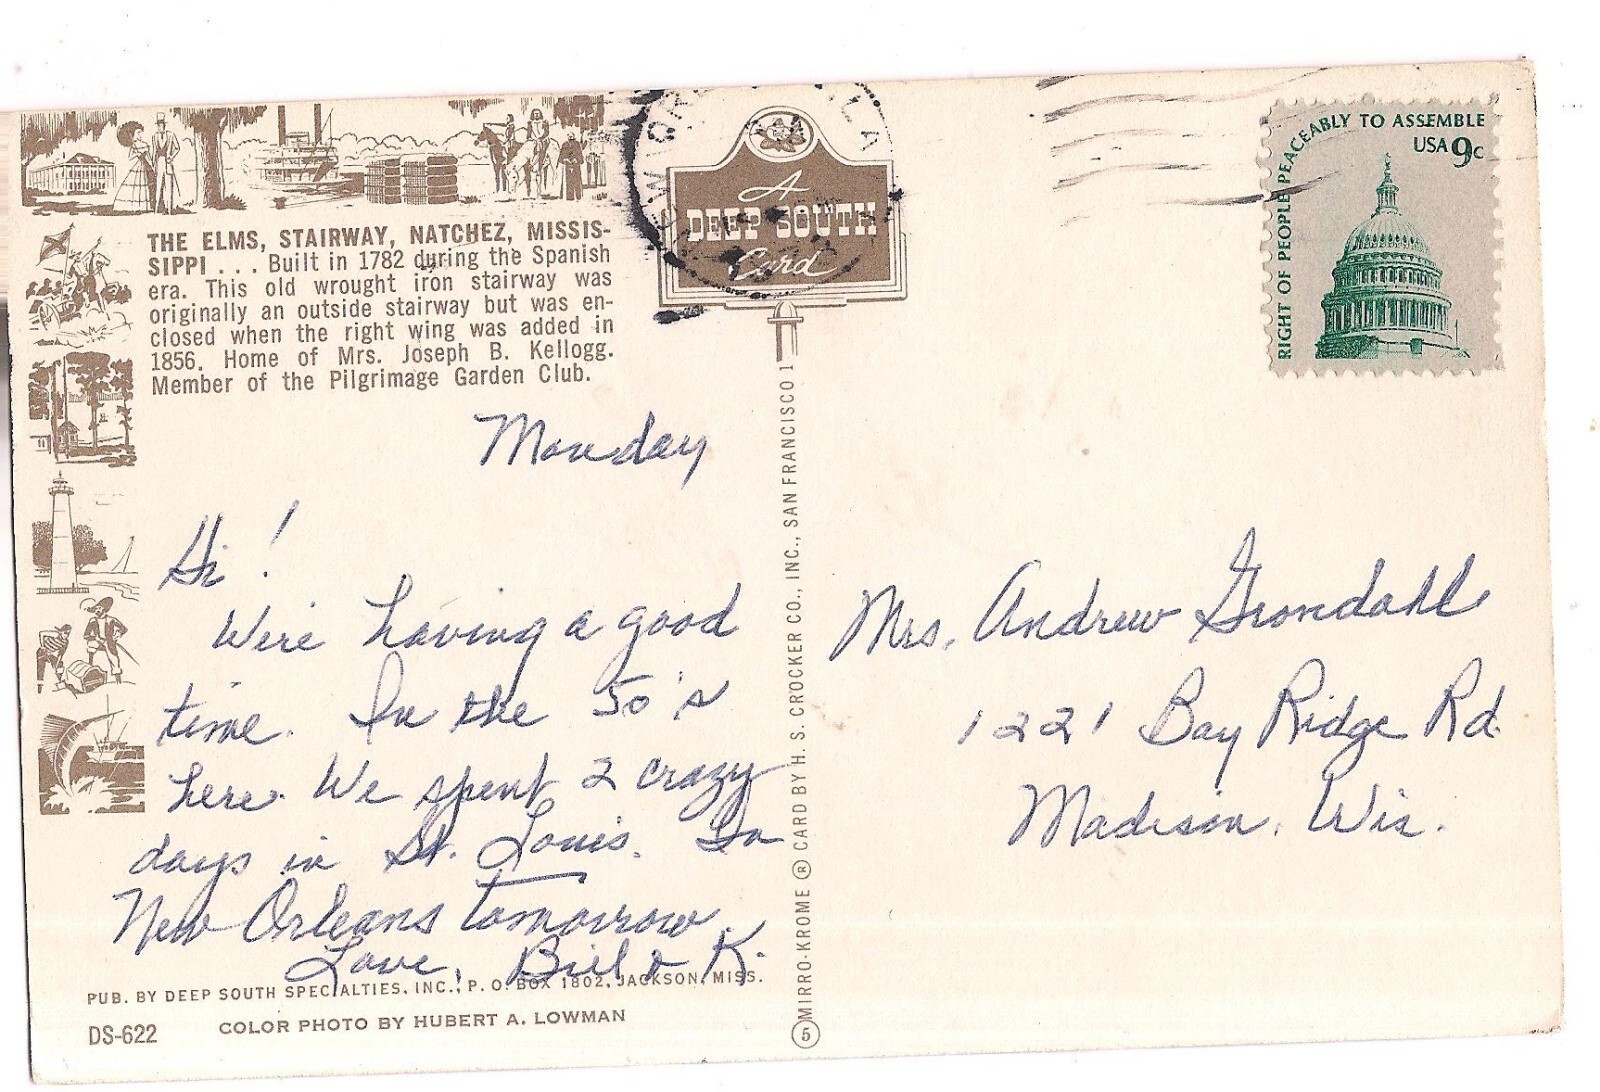 THE ELMS, STAIRWAY, NATCHEZ, MISSIS-
SIPPI . . . Built in 1782 during the Spanish
era. This old wrought iron stairway was
originally an outside stairway but was en-
closed when the right wing was added in
1856. Home of Mrs. Joseph B. Kellogg.
Member of the Pilgrimage Garden Club.
Monday
Hi!
We're having a good
time. In the 50's
here. We spent 2 crazy
days in St. Louis. In
New Orleans tomorrow.
Love, Bill & K.
PUB. BY DEEP SOUTH SPECIALTIES, INC., P. O. BOX 1802, JACKSON, MISS.
DS-622 COLOR PHOTO BY HUBERT A. LOWMAN
A
DEEP SOUTH
Card
NEW ORLEANS, LA
MIRRO-KROME ® CARD BY H. S. CROCKER CO., INC., SAN FRANCISCO 1
5
RIGHT OF PEOPLE PEACEABLY TO ASSEMBLE
USA 9c
Mrs. Andrew Grondahl
1221 Bay Ridge Rd.
Madison, Wis.